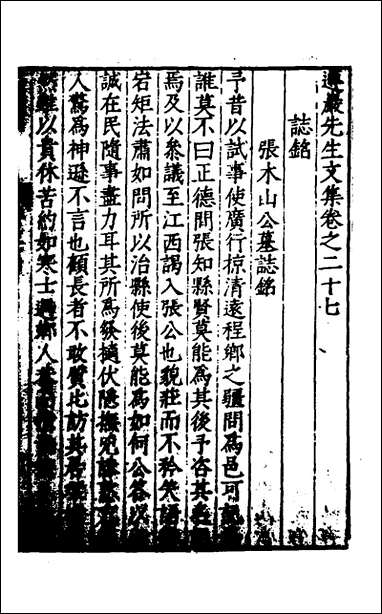 遵巖先生文集卷之二十七
誌銘
張木山公墓誌銘
予昔以試事使廣行掠清遠程鄉之疆問爲邑可
誰莫不曰正德間張知縣賢莫能爲其後予咨其
焉及以叅議至江西謁入張公也貌莊而不矜
宕矩法肅如問所以治縣使後莫能爲如何公答以
誠在民隨事盡力耳其所爲發擿伏隱撫
人驚爲神遜不言也顧長者不敢質比訪其居
雖以貴休苦約如寒士遇鄉人